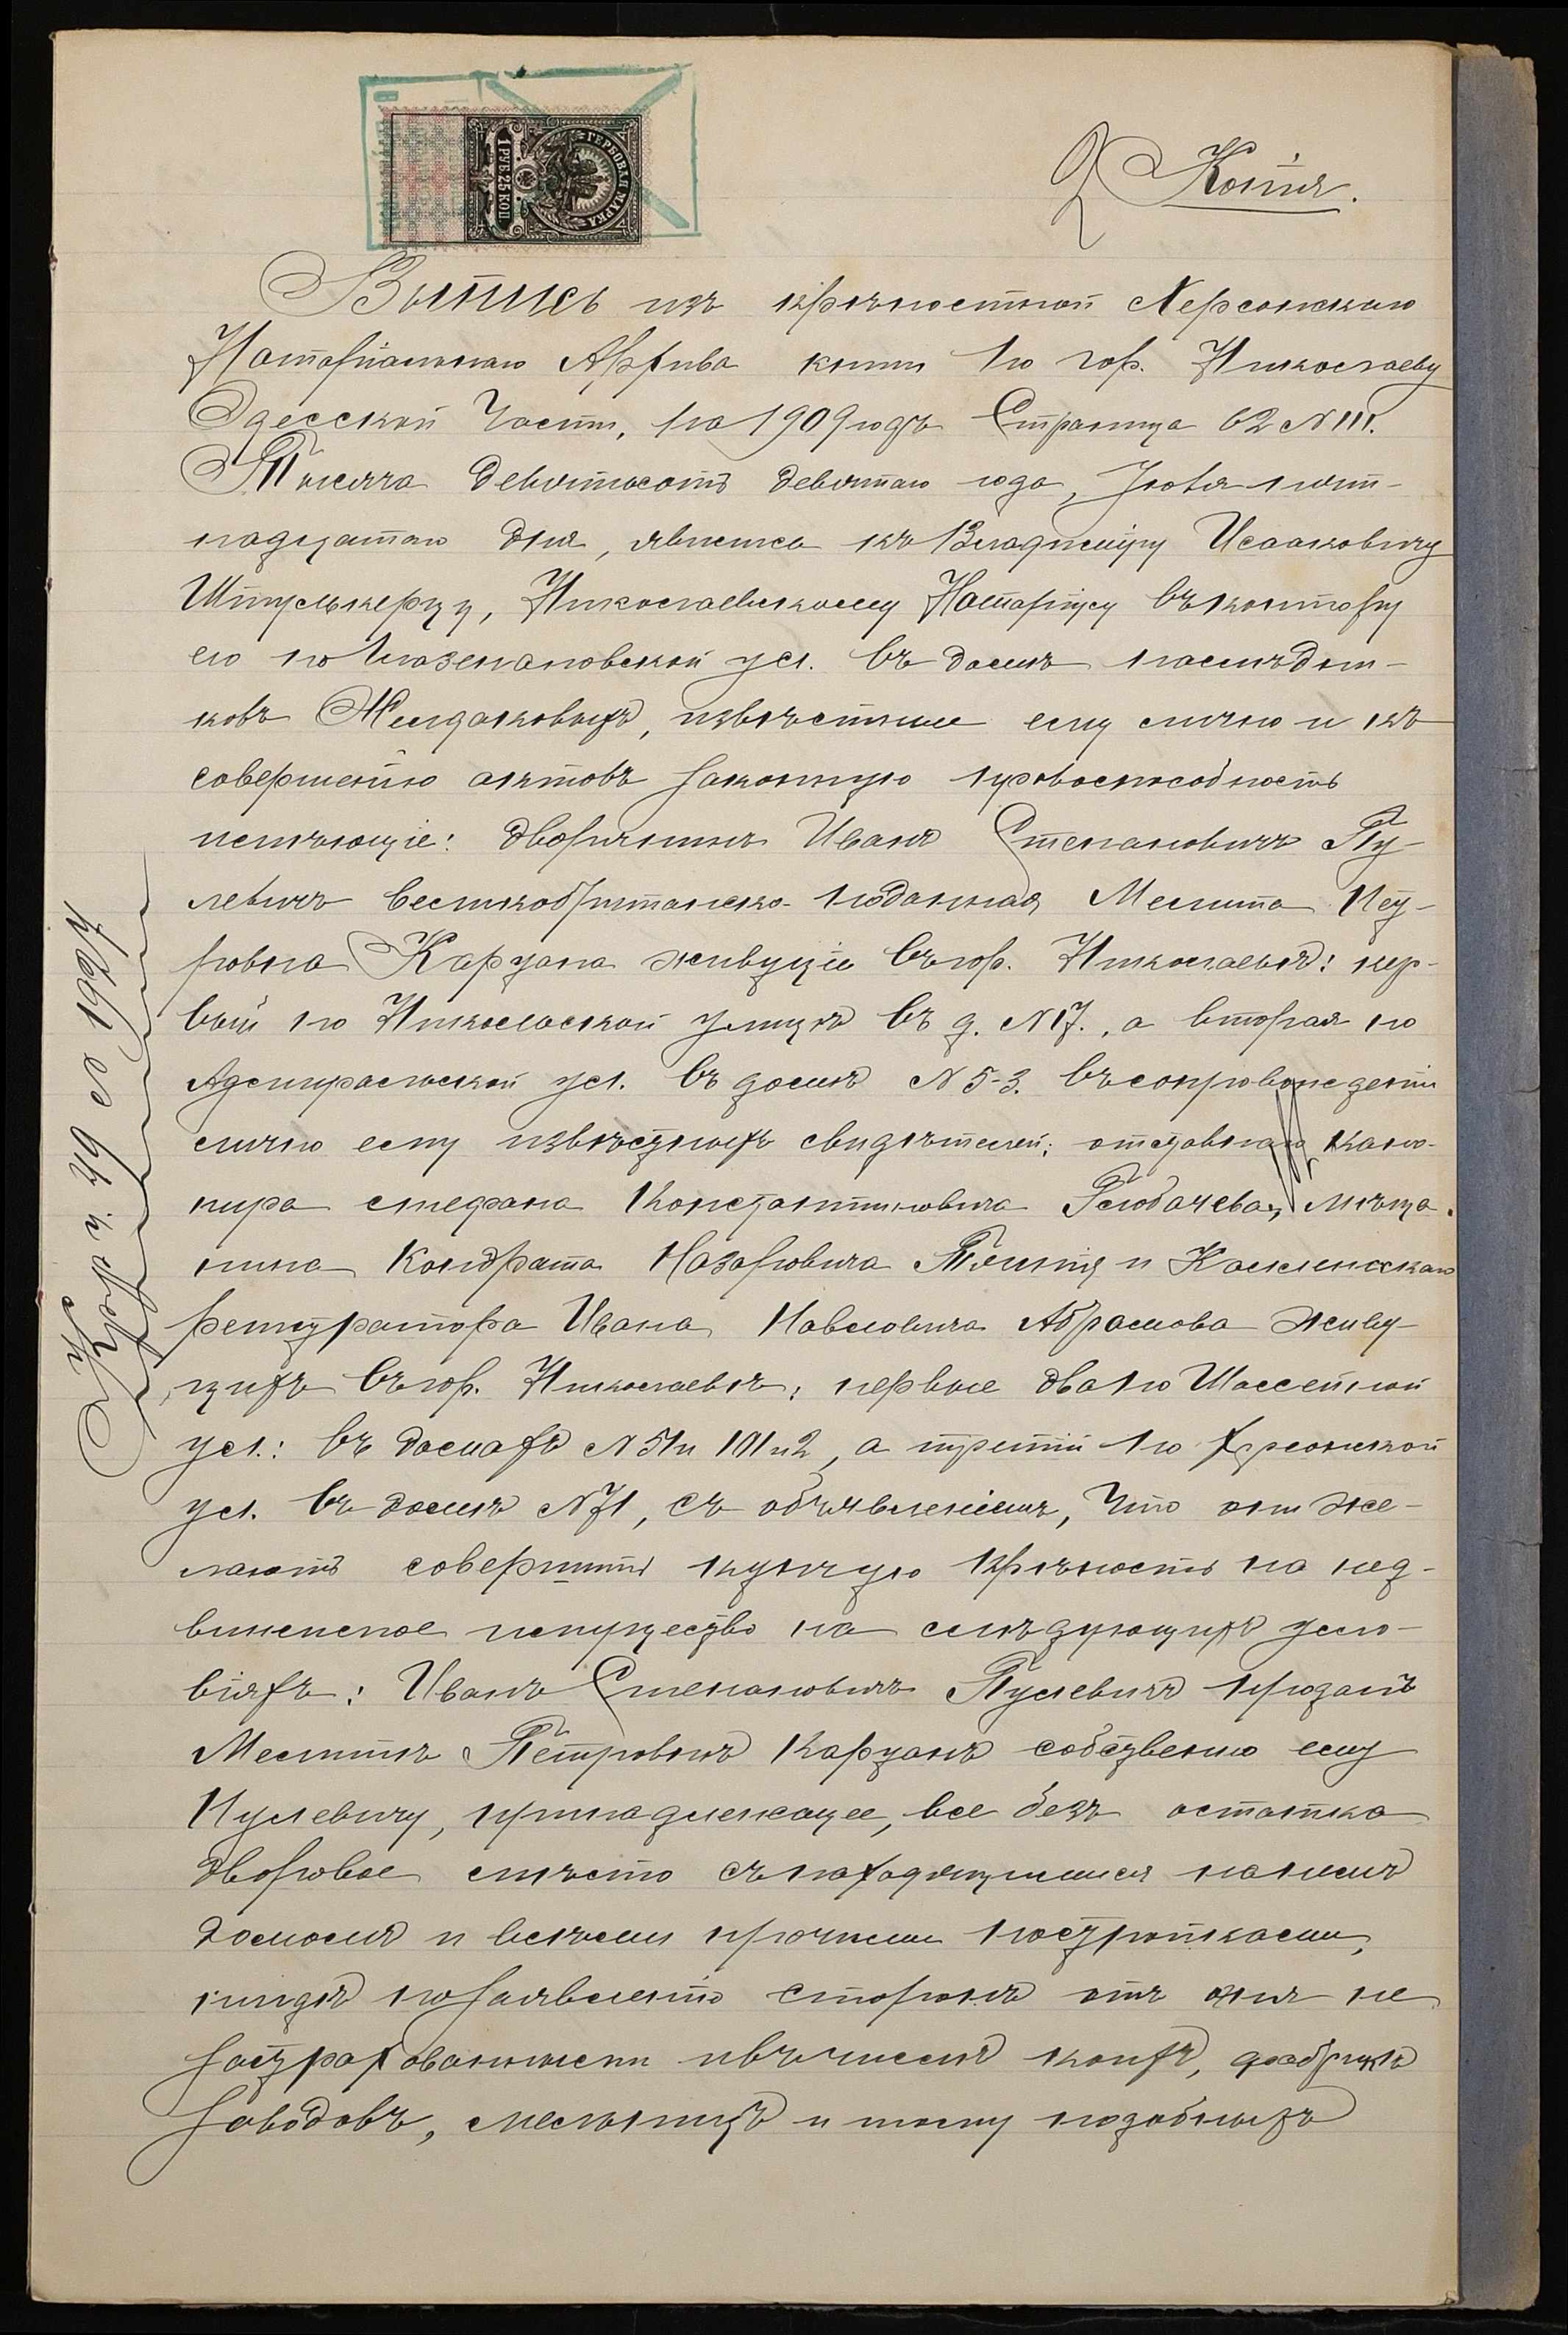 ГЕРБОВАЯ МАРКА
1 РУБ. 25 КОП.
Копія.
Выпись изъ крѣпостной Херсонскаго
Нотаріальнаго Архива книги по гор. Николаеву
Одесской Части, на 1909 годъ Страница 62 N III.
Тысяча девятьсотъ девятаго года, Іюня пят-
надцатаго дня, явились къ Владиміру Исааковичу
Николаевскому Нотаріусу въ контору
его по Глазенаповской ул. въ домѣ наслѣдни-
ковъ извѣстные ему лично и къ
совершенію актовъ законную правоспособность
имѣющіе: дворянинъ Иванъ Степановичъ Пу-
левичъ и великобританско-подданная Мелита Пет-
ровна Каруана живущіе въ гор. Николаевѣ: пер-
вый по Никольской улицѣ въ д. N 17., а вторая по
Адмиральской ул. въ домѣ N 5-3. въ сопровожденіи
лично ему извѣстныхъ свидѣтелей: отставнаго кано-
нира Стефана Константиновича Глобачева, мѣща-
нина Кондрата Назаровича и Коллежскаго
регистратора Ивана Павловича Абрамова живу-
щихъ въ гор. Николаевѣ: первые два по Шоссейной
ул.: въ домахъ N 51 и 101 и 2, а третій по Херсонской
ул. въ домѣ N 71, съ объявленіемъ, что они же-
лаютъ совершить купчую крѣпость на нед-
вижимое имущество на слѣдующихъ усло-
віяхъ: Иванъ Степановичъ Пулевичъ продалъ
Мелитѣ Петровнѣ Каруанѣ собственно ему
Пулевичу, принадлежащее, все безъ остатка
дворовое мѣсто съ находящимися на немъ
домомъ и всѣми прочими постройками,
нигдѣ по заявленію сторонъ отъ огня не
застрахованными и въ числѣ коихъ, фабрикъ
заводовъ, мельницъ и тому подобныхъ